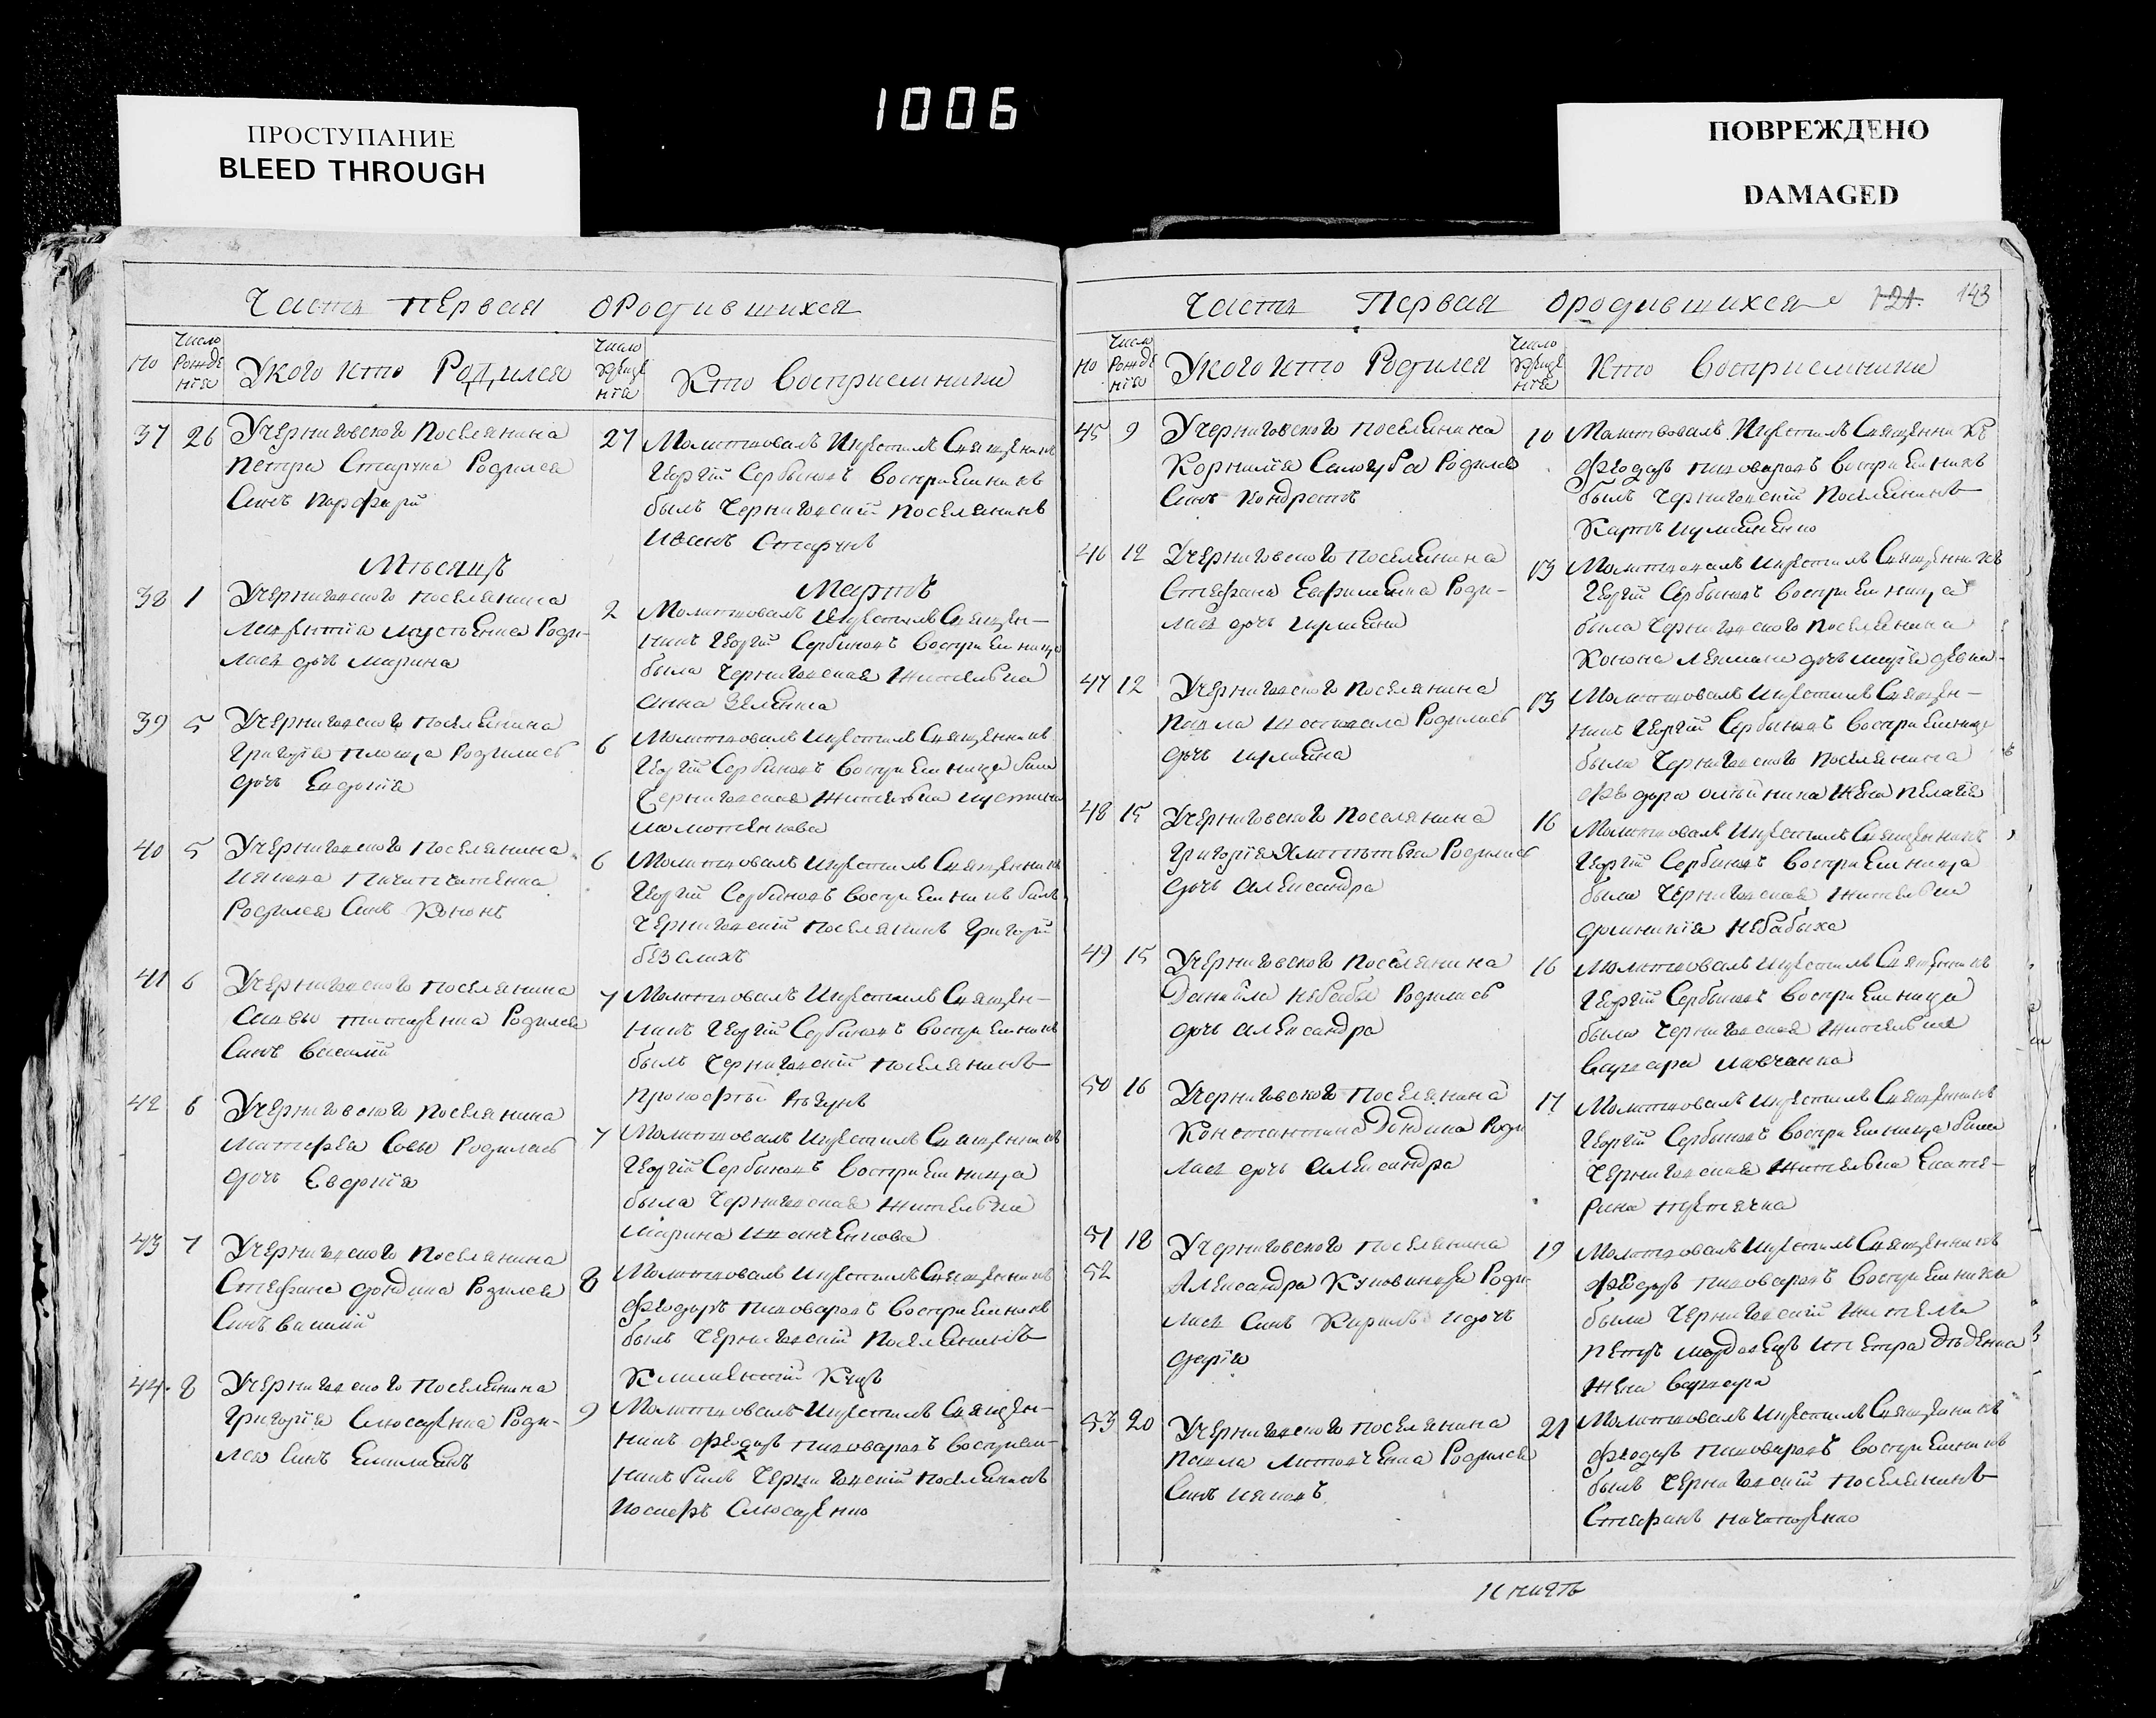 1006
ПРОСТУПАНИЕ
BLEED THROUGH
ПОВРЕЖДЕНО
DAMAGED
Часть первая ородившихся
Но
Число Рожде нія
Укого кто Родился
Число Креще нія
Кто Восприемники
37 26 Учерниговского Поселянина
Петра Старуна Родился
Синъ Порфирй
27 Молитвовалъ Икрестилъ Священикъ
Георгій Сербиновъ Восприемникъ
былъ Черниговскій Поселянинъ
Иванъ Старунъ
Мѣсяцъ
Мартъ
38 1 Учерниговского поселянина
Роди-
лась дочъ Марина
2 Молитвовалъ Икрестилъ Священ-
никъ Георгій Сербиновъ Восприемница
была Черниговская Жителька
Анна Зеленска
39 5 Учерниговского поселянина
Григорія Родилась
дочъ Евдокія
6 Молитвовалъ Икрестилъ Священникъ
Георгій Сербиновъ Восприемница была
Черниговская Жителька
40 5 Учерниговского Поселянина
Родился Синъ Кононъ
6 Молитвовалъ Икрестилъ Священникъ
Георгій Сербиновъ Восприемникъ билъ
Черниговскій поселянинъ Григорй
41 6 Учерниговского поселянина
Савы Родился
Синъ Василій
7 Молитвовалъ Икрестилъ Священ-
никъ Георгій Сербиновъ Восприемникъ
былъ Черниговскій Поселянинъ
Прокофтій
42 6 Учерниговского поселянина
Матфея Совы Родилась
дочъ Евдокія
7 Молитвовалъ Икрестилъ Священникъ
Георгій Сербиновъ Восприемница
была Черниговская Жителька
Марина Иванченкова
43 7 Учерниговского Поселянина
Стефана Дондика Родился
Синъ Василій
8 Молитвовалъ Икрестилъ Священникъ
Феодоръ Пивоваровъ Восприемникъ
былъ Черниговскій Поселянинъ
44 8 Учерниговского поселянина
Григорія Слюсаренка Роди-
лся Синъ Емилианъ
9 Молитвовалъ Икрестилъ Священ-
никъ Феодоръ Пивоваровъ Восприем-
никъ билъ Черниговскій поселянинъ
Иосифъ Слюсаренко
Часть Первая ородившихся 121. 143
Но
Число Рожде нія
Укого кто Родился
Число Креще нія
Кто Восприемники
45 9 Учерниговского поселянина
Корнилія Салогуба Родился
Синъ Кондратъ
10 Молитвовалъ Икрестилъ Священникъ
Феодоръ Пивоваровъ Восприемникъ
былъ Черниговскій Поселянинъ
46 12 Учерниговского поселянина
Стефана Роди-
лась дочъ
13 Молитвовалъ Икрестилъ Священникъ
Георгій Сербиновъ Восприемница
была Черниговского Поселянина
Конона дочъ девка
47 12 Учерниговского поселянина
Павла Родилась
дочъ
13 Молитвовалъ Икрестилъ Священ-
никъ Георгій Сербиновъ Восприемница
была Черниговского Поселянина
Феодора Жена Пелагія
48 15 Учерниговского Поселянина
Григорія Родилась
дочъ Александра
16 Молитвовалъ Икрестилъ Священникъ
Георгій Сербиновъ Восприемница
была Черниговская Жителька
Домникія Небабыха
49 15 Учерниговского поселянина
Данаила Небабы Родилась
дочъ Александра
16 Молитвовалъ Икрестилъ Священникъ
Георгій Сербиновъ Восприемница
была Черниговская Жителька
Варвара
50 16 Учерниговского поселянина
Константина Дондика Роди
лась дочъ Александра
17 Молитвовалъ Икрестилъ Священникъ
Георгій Сербиновъ Восприемница была
Черниговская Жителька Екате-
рина
51 18 Учерниговского поселянина
52 Александра Роди-
лись Синъ Кирилъ идочъ
дарія
19 Молитвовалъ Икрестилъ Священникъ
Феодоръ Пивоваровъ Восприемники
были Черниговскій Жители
Петръ ипетра
Жена Варвара
53 20 Учерниговского поселянина
Павла Родился
Синъ Иаковъ
21 Молитвовалъ Икрестилъ Священникъ
Феодоръ Пивоваровъ Восприемникъ
былъ Черниговскій Поселянинъ
Стефанъ